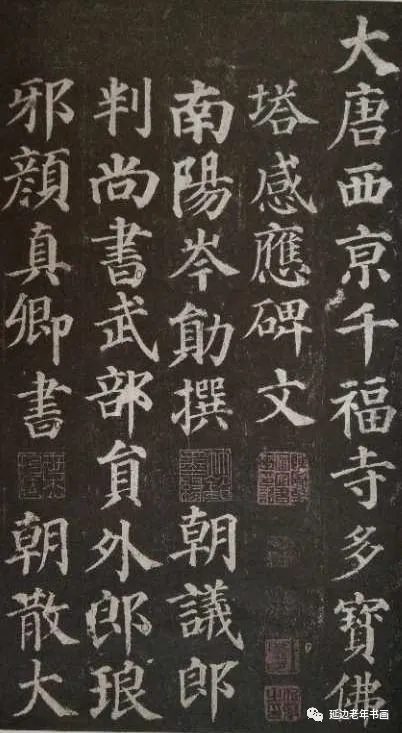 大唐西京千福寺多寶佛
塔感應碑文
南陽岑勛撰 朝議郎
判尚書武部員外郎琅
邪顏真卿書 朝散大
延边老年书画